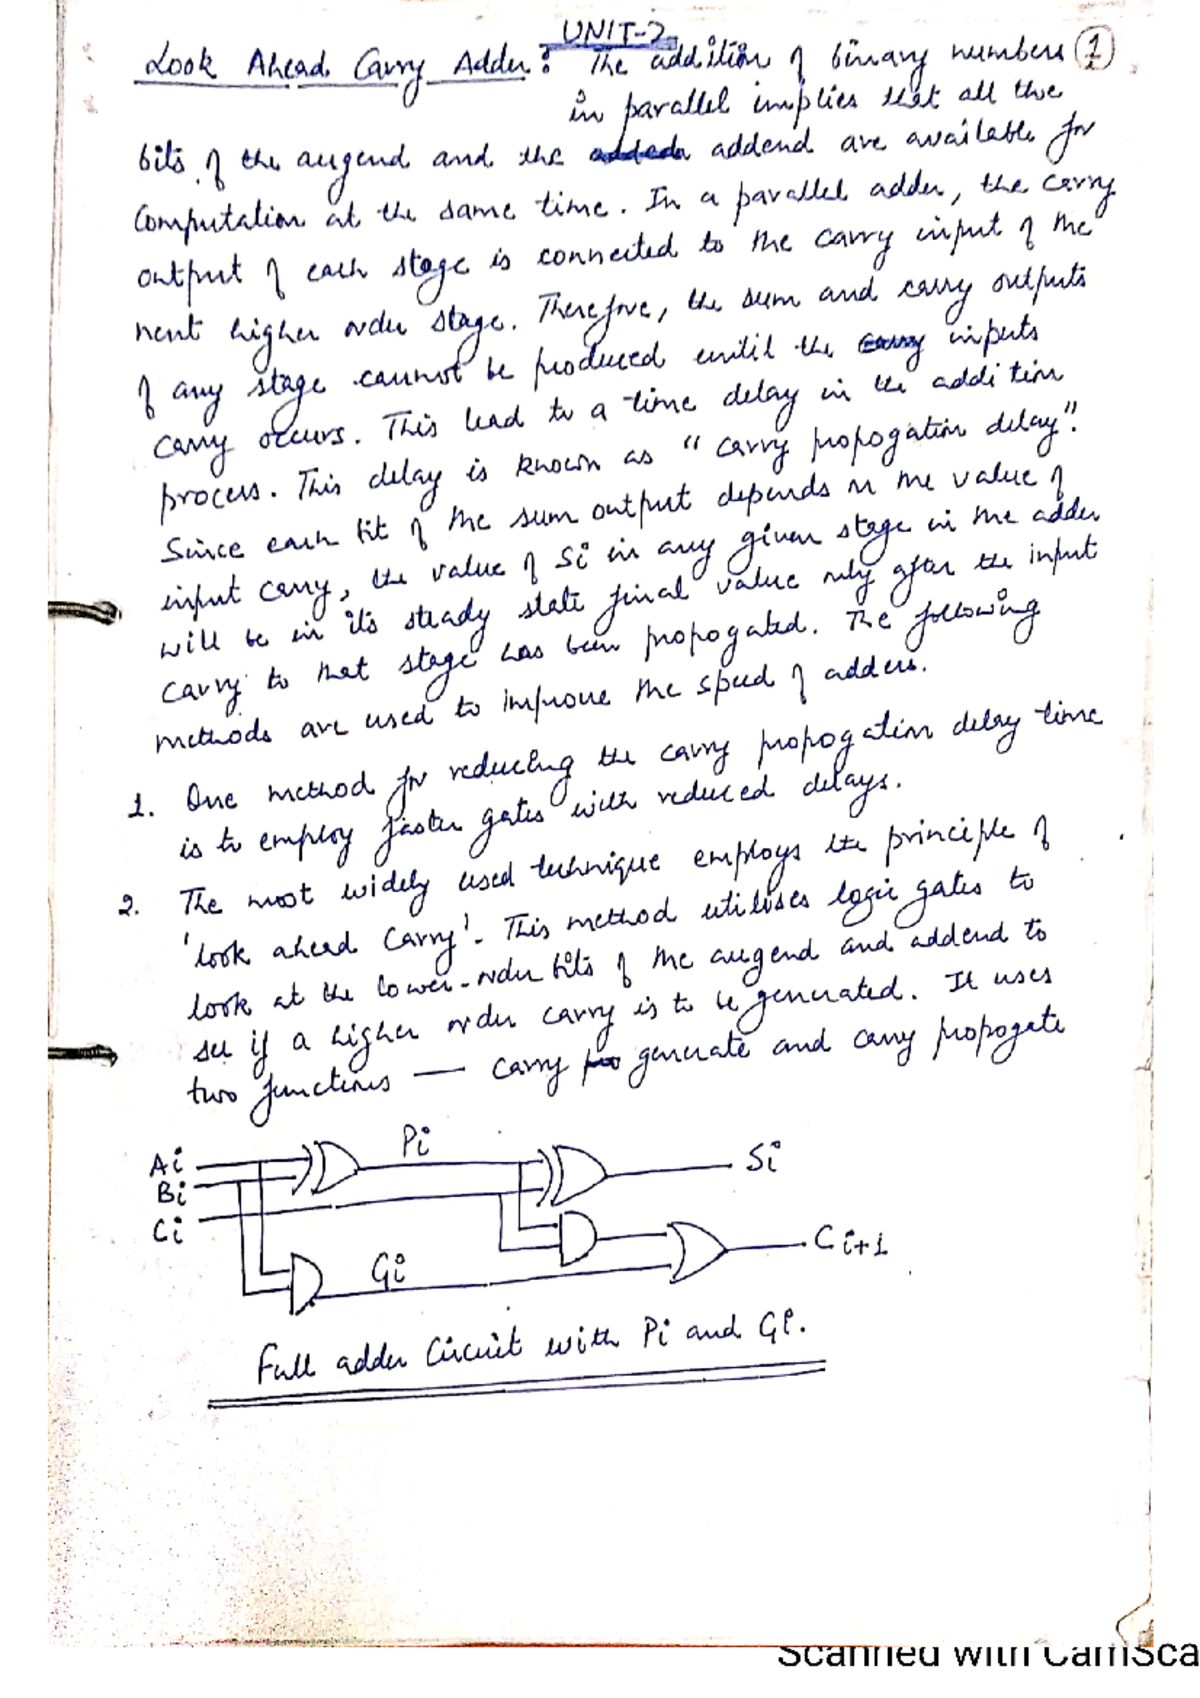 UNIT-2
Look Ahead Carry Adder: The addition of binary numbers 1
in parallel implies that all the
bits of the augend and the addend are available for
Computation at the same time. In a parallel adder, the carry
output of each stage is connected to the carry input of the
next higher order stage. Therefore, the sum and carry outputs
of any stage cannot be produced until the inputs
carry occurs. This lead to a time delay in the addition
process. This delay is known as "carry propogation delay".
Since each bit of the sum output depends on the value of
input carry, the value of Si in any given stage in the adder
will be in its steady state final value only after the input
carry to that stage has been propogated. The following
methods are used to improve the speed of adders.
1. One method for reducing the carry propogation delay time
is to employ faster gates with reduced delays.
2. The most widely used technique employs the principle of
'look ahead Carry'. This method utilises logic gates to
look at the lower-order bits of the augend and addend to
see if a higher order carry is to be generated. It uses
two functions — carry generate and carry propogate
Ai
Bi
Ci
Pi
Gi
Si
Ci+1
Full adder Circuit with Pi and Gi.
Scanned with CamSca